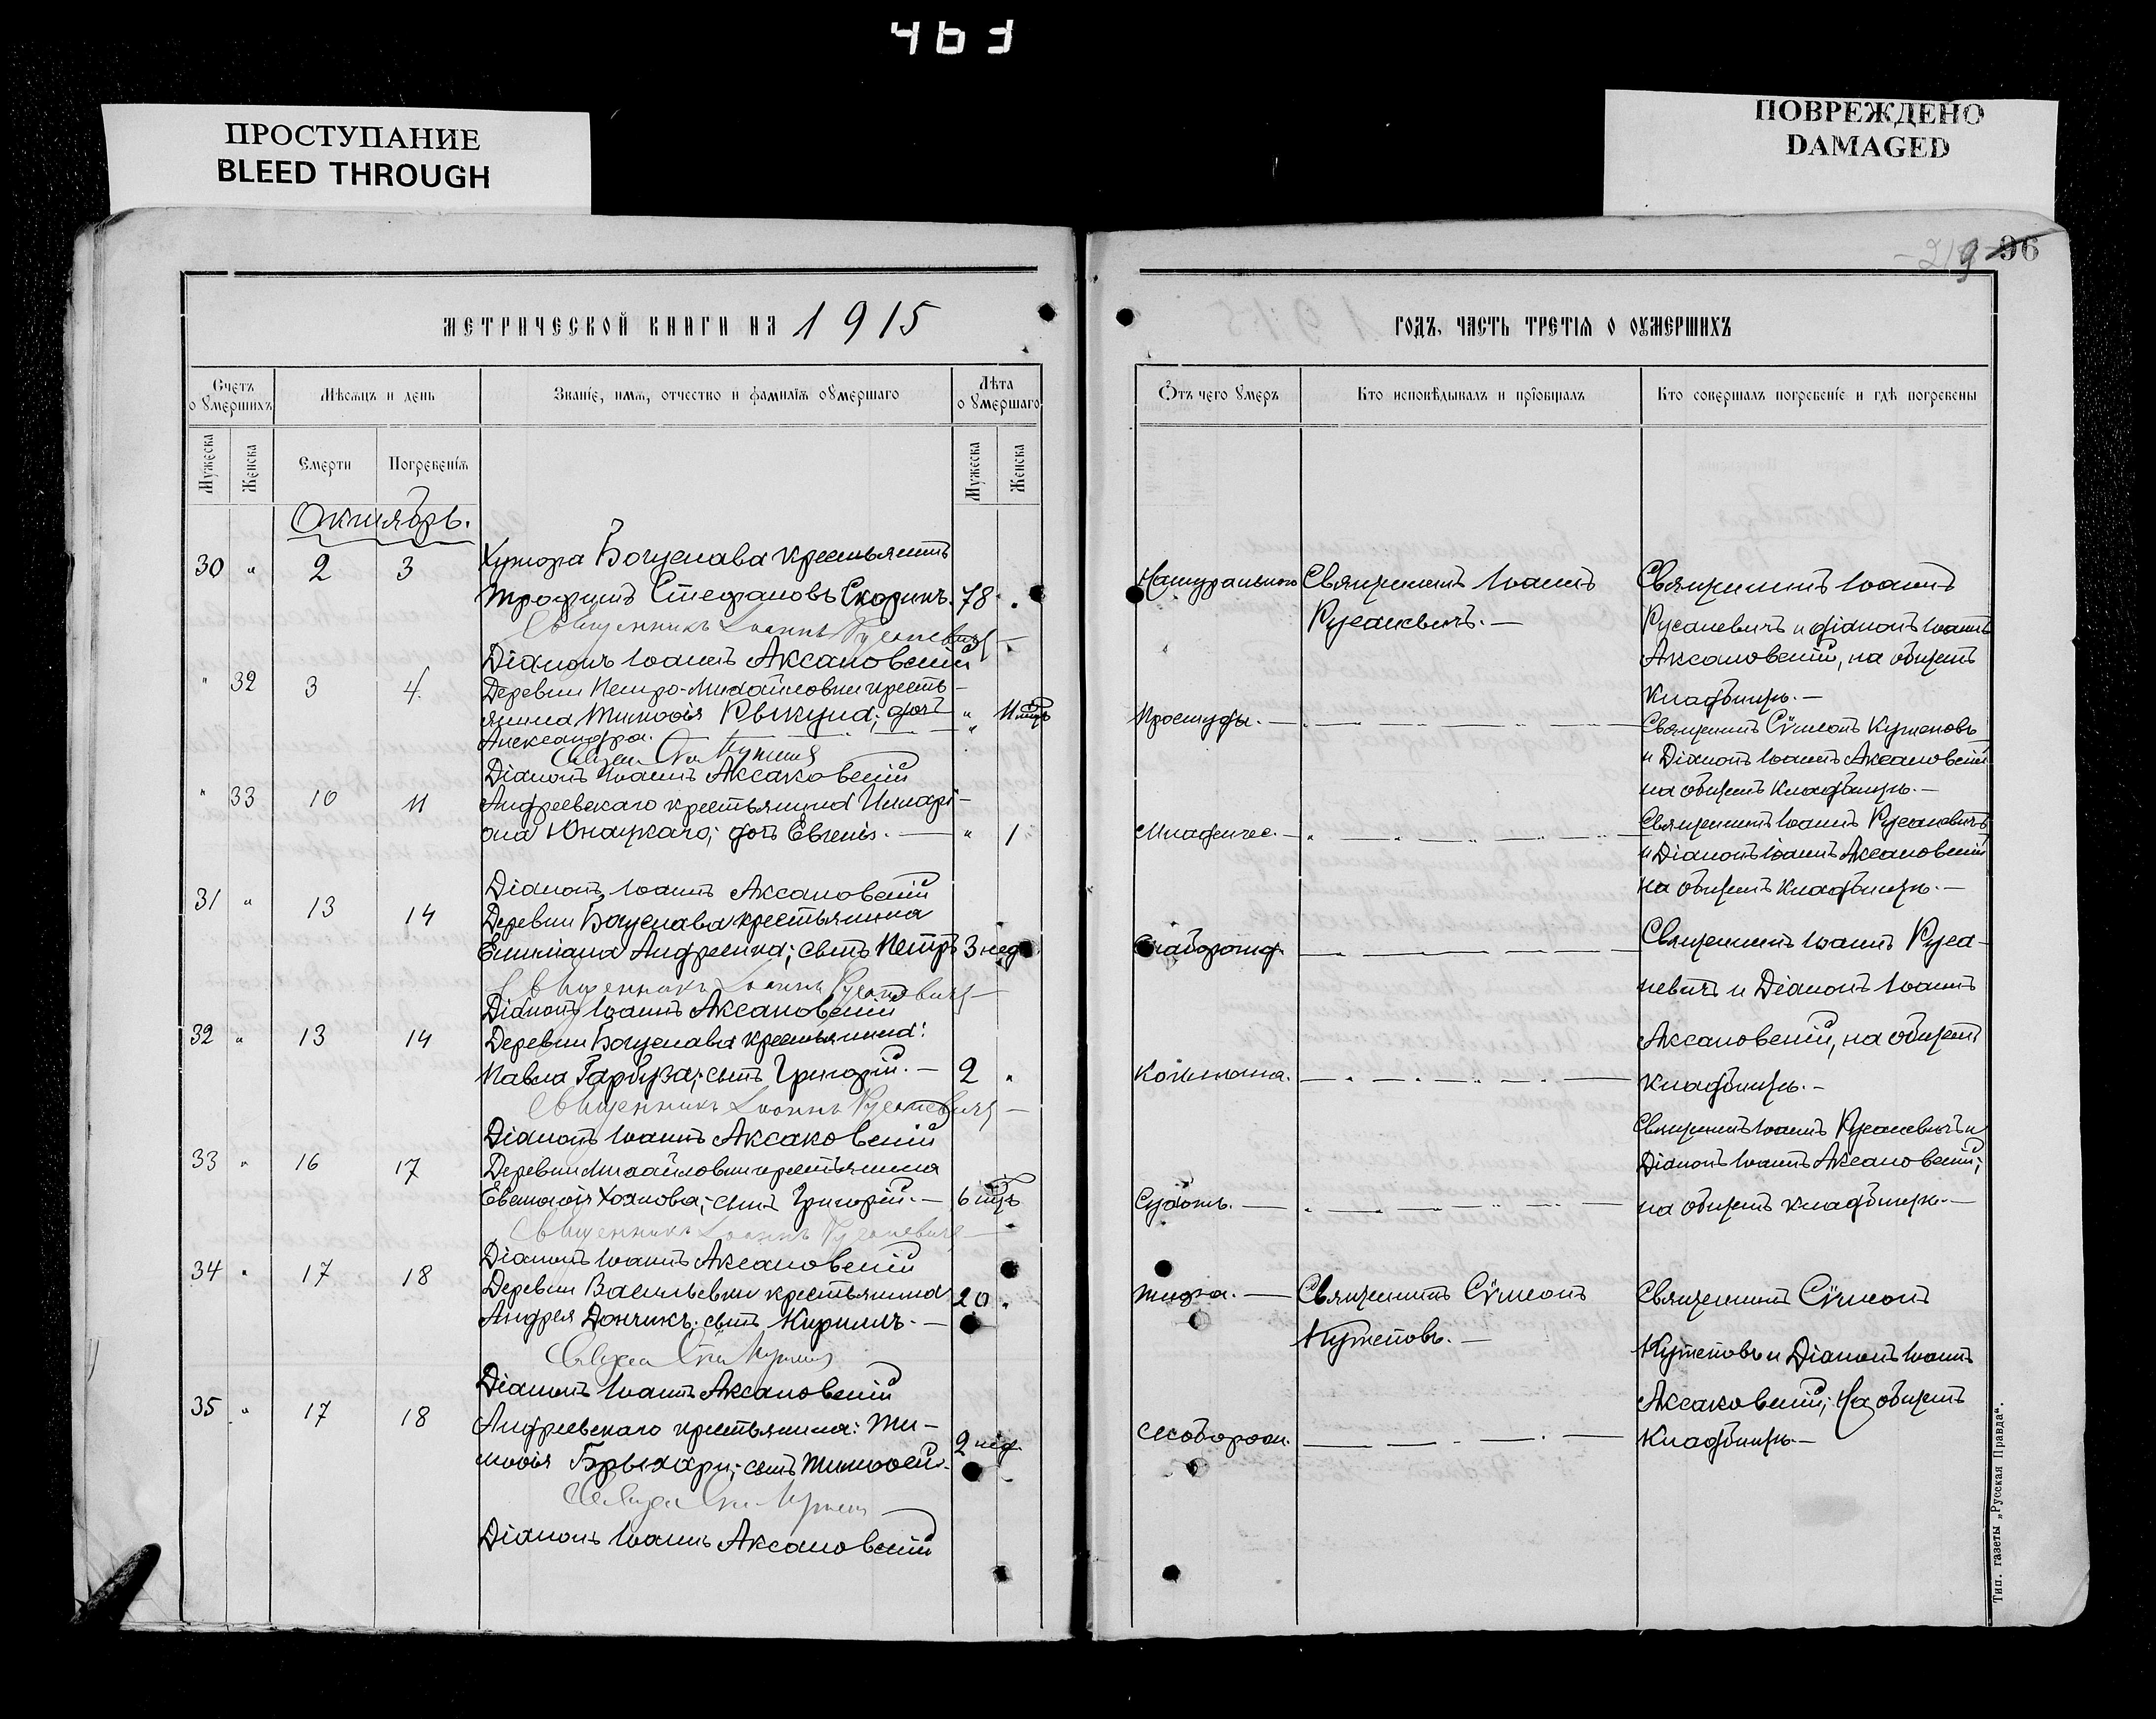 463
ПРОСТУПАНИЕ
BLEED THROUGH
ПОВРЕЖДЕНО
DAMAGED
96
МЕТРИЧЕСКОЙ КНИГИ НА 1915
Счетъ о умершихъ
Мѣсяцъ и день
Званіе, имя, отчество и фамилія умершаго
Лѣта умершаго
Мужеска
Женска
Смерти
Погребенія
Мужеска
Женска
Октябрь.
30 " 2 3 Хутора Богуслава крестьянинъ
Трофимъ Стефановъ Скорикъ. 78
Священникъ Іоаннъ Русаневичъ
Діаконъ Іоаннъ Аксаковскій
" 32 3 4 Деревни Петро-Михайловки кресть-
янина Тимоѳія Квикула; дочь " 11 мѣс
Александра.
Діаконъ Іоаннъ Аксаковскій
" 33 10 11 Андреевскаго крестьянина Иларі-
она Юнацкаго; дочь Евгенія. " 1
Діаконъ Іоаннъ Аксаковскій
31 " 13 14 Деревни Богуслава крестьянина
Емиліана Андреенка; сынъ Петръ 3 нед
Священникъ Іоаннъ Русаневичъ
Діаконъ Іоаннъ Аксаковскій
32 " 13 14 Деревни Богуслава крестьянина:
Павла Гарбуза; сынъ Григорій. 2
Священникъ Іоаннъ Русаневичъ
Діаконъ Іоаннъ Аксаковскій
33 " 16 17 Деревни Михайловки крестьянина
Евстаѳія; сынъ Григорій. 6 мѣс
Священникъ Іоаннъ Русаневичъ
Діаконъ Іоаннъ Аксаковскій
34 " 17 18 Деревни Васильевки крестьянина
Андрея Дончикъ. сынъ Кириллъ. 20
Діаконъ Іоаннъ Аксаковскій
35 " 17 18 Андреевскаго крестьянина: Ти-
моѳія; сынъ Тимоѳей. 2 нед.
Діаконъ Іоаннъ Аксаковскій
ГОДЪ, ЧАСТЬ ТРЕТІЯ О УМЕРШИХЪ
Отъ чего умеръ
Кто исповѣдывалъ и пріобщалъ
Кто совершалъ погребеніе и гдѣ погребены
Натурально
Священникъ Іоаннъ
Русаневичъ.
Священникъ Іоаннъ
Русаневичъ и діаконъ Іоаннъ
Аксаковскій, на общемъ
кладбищѣ.
Простуды.
Священникъ Сѵмеонъ Кутеповъ
и Діаконъ Іоаннъ Аксаковскій
на общемъ кладбищѣ.
Младенчес.
Священникъ Іоаннъ Русаневичъ
и Діаконъ Іоаннъ Аксаковскій
на общемъ кладбищѣ.
Слаборожд.
Священникъ Іоаннъ Руса-
невичъ и Діаконъ Іоаннъ
Аксаковскій, на общемъ
кладбищѣ.
Коклюша.
Священникъ Іоаннъ Русаневичъ и
Діаконъ Іоаннъ Аксаковскій;
на общемъ кладбищѣ.
Тифа.
Священникъ Сѵмеонъ
Кутеповъ.
Священникъ Сѵмеонъ
Кутеповъ и Діаконъ Іоаннъ
Аксаковскій; на общемъ
кладбищѣ.
Тип. газеты „Русская Правда".